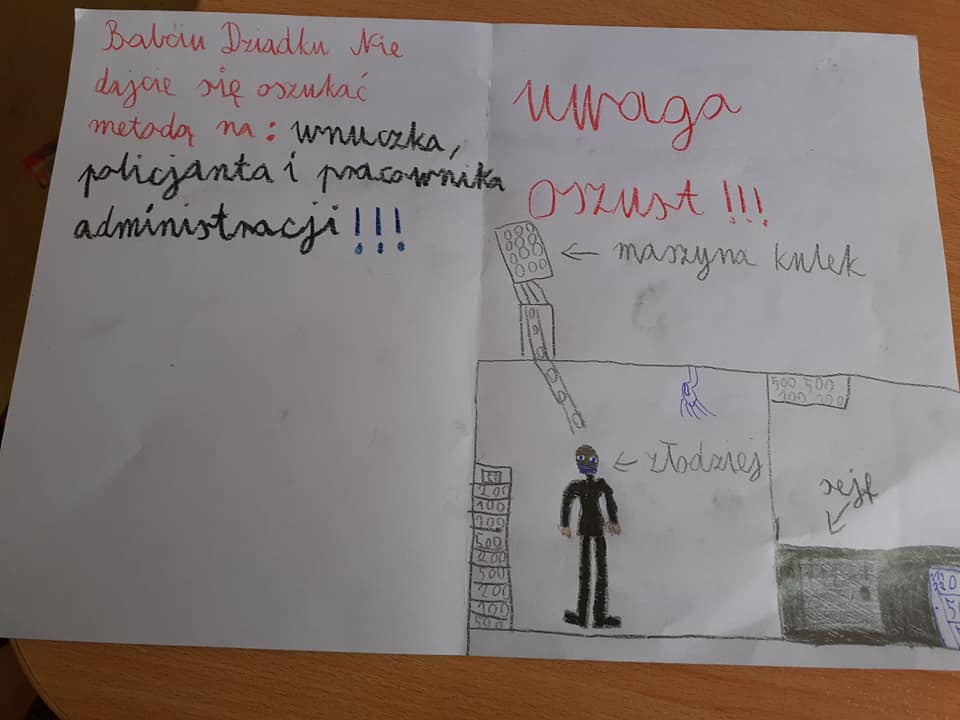 Babciu Dziadku Nie
dajcie się oszukać
metodą na: wnuczka,
policjanta i pracownika
administracji!!!
uwaga
oszust!!!
← maszyna kulek
500 500
100 100
← złodziej
sejf
200
100
100
500
200
500
200
100
500